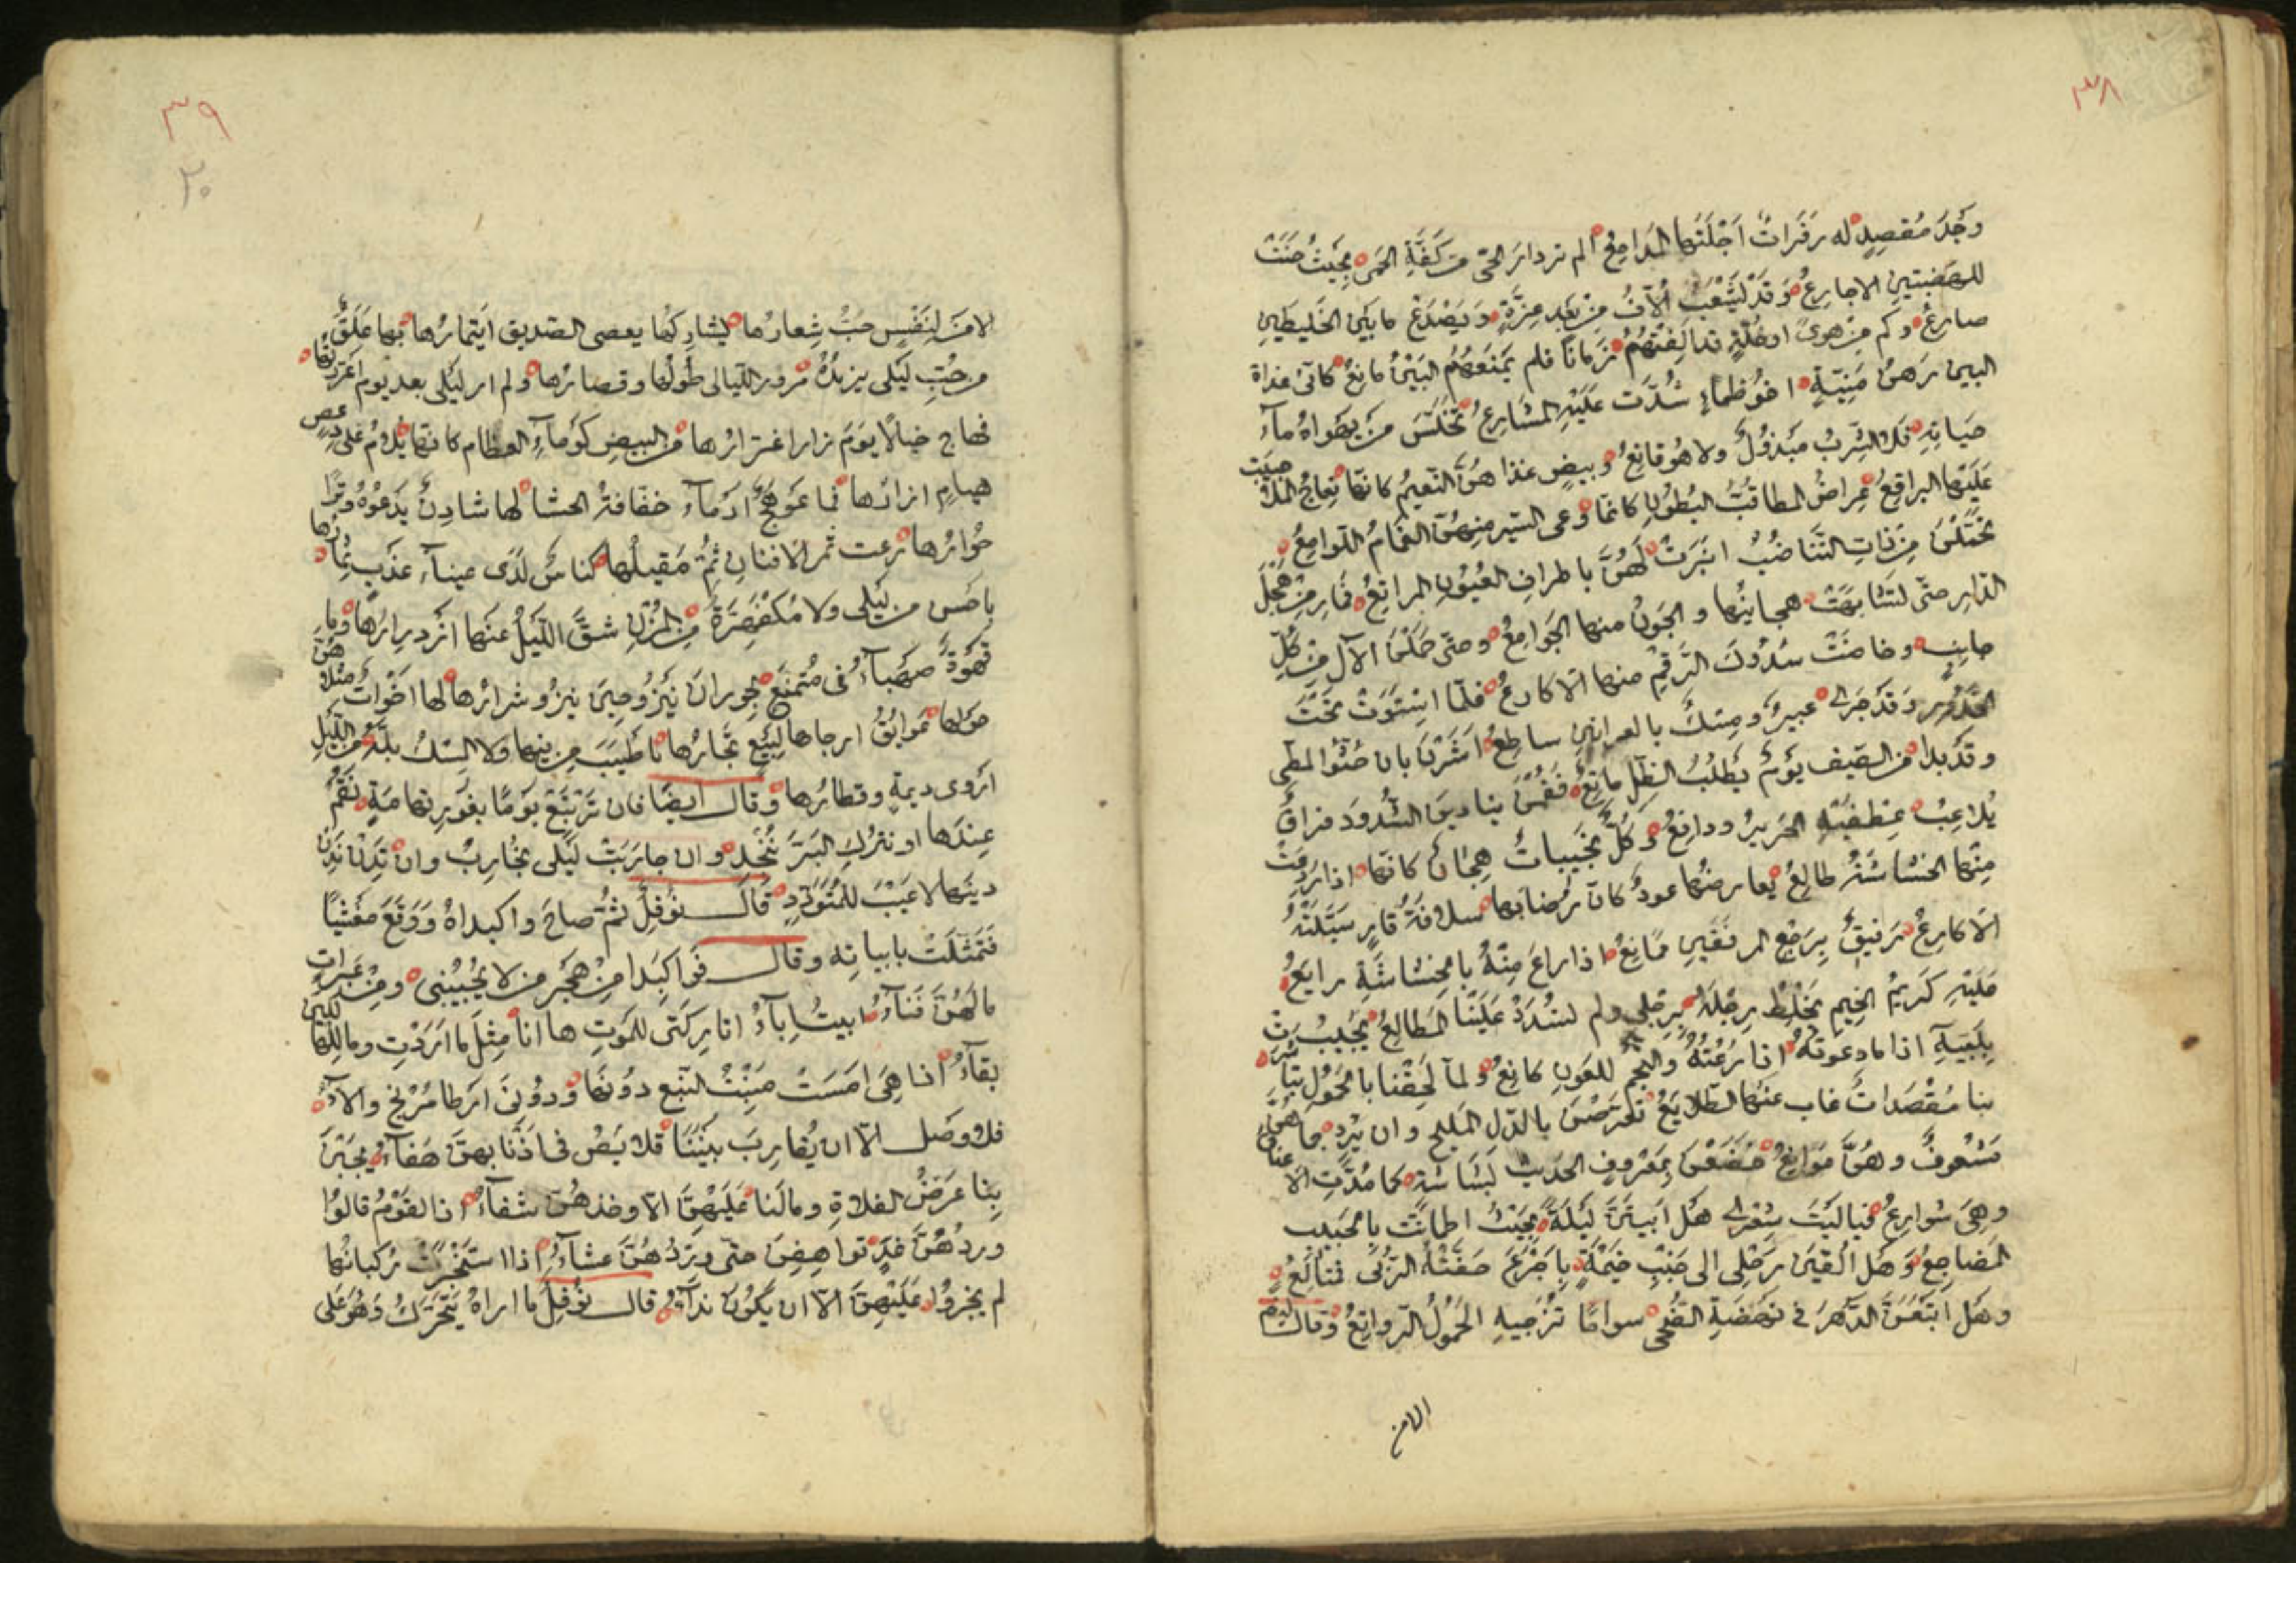 ٣٨
وجد مُقصِدٍ له زفرات اجْلَتها المدامع الم تر دار الحى من كفة الحمى بحيث حنت
للهضبتين الاجارع وقد يشعب الآف من بعد عزة ويصدع ما بين الخليطين
صارع وكم من هوى او خلة قد الفتهم زمانا فلم يمنعهم البين مانع كانى غداة
البين رهن منية اخو ظماء شدت عليه المشارع تخلس من يهواه ماء
حياته فلا الشرب مبذول ولا هو قانع وبيض غذاهن النعيم كانها نعاج الملا جيبت
عليها البراقع عراض المطا قب البطون كانما وعى السير منهن الغمام اللوامع
تحملن من ذات التناضب انبرت لهن باطراف العيون المرابع فما رمن هجل
الدار حتى تشابهت هجاينها والجون منها الجوامع وحتى حملن الآل من كل
جانب وخاضت سدوك الرقم منها الاكارع فلما استوت تحت
الخدور وقد جرى عبير ومسك بالعرانين ساطع اشرن بان حثوا المطى
وقد بدا من الصيف يوم يطلب الظل مانع فقمن ينادين الشدود فراق
يلاعب عطفيه الحرير ودافع وكل نجيبات هجان كانها اذا رومت
منها الخشاشة طالع يعارضها عود كان رضابها سلافة قار سيلته
الاكارع رفيق برجع المرفقين ممانع اذا راع منه بالخشاشة رايع
عليه كريم الخيم يخلط رحله برحلى ولم تسدد علينا المطالع يجيب
بلبيه اذا ما دعوته اذا رعته والنجم للغون كانع ولما لحقنا بالحمول تباشرت
بنا مقصدات غاب عنها الطلايع تعرضن بالدل المليح وان يرد جناهن
مشعوف وهن موانع خضعن بمعروف الحديث بشاشة كما مدت الاعناق
وهى شوارع فيا ليت شعرى هل ابيتن ليلة بحيث اطمانت بالحبيب
المضاجع وهل القين رحلى الى جنب خيمة باجرع حفته الربى فمتالع
وهل ابتعثن الدهر فى نهضة الضحى سواما تزجيه الحمول الرواتع وقال ايضا
الامن
٣٩
٢٠
الا من لنفس حب شعارها يشاركها يعصى الصديق ايتمارها بها علق
من حب ليلى يزيده مرور الليالى طولها وقصارها ولم ار ليلى بعد يوم اغترتها
فهاج خبالا يوم زار اغترارها من البيض كوماء العظام كانها يلاث على دعص
هيام ازارها فما عوهج ادماء خفاقة الحشا لها شادن يدعوه وترا
خوارها رعت ثمر الافنان ثم مقيلها كناس لدى عيناء عذب ثمارها
باحسن من ليلى ولا مكفهرة من المزن شق الليل عنها ازدرارها وما
قهوة صهباء فى متمنع بجوران ينزو حين ينزو شرارها لها اخوات مثلهن
حولها عوابق ارجاها لبيع تجارها باطيب من فيها ولا المسك بله من الليل
اروى ديمة وقطارها وقال ايضا فان ترتبع يوما بغوير تهامة نقم
عندها او نترك البر ننجد وان حاربت ليلى نحارب وان تدن ندن
دينها لا عيب للمتودد قال نوفل ثم صاح وا كبداه ووقع مغشيا
فتمثلت بابياته وقال فوا كبدا من هجر من لا يجيبنى ومن عبرات
ما لهن فناء ابيت اباء اتاركتى للموت ها انا مثل ما اردت وما للهالكين
بقاء اذا هى امست منبت النبع دونها ودونى ارطا مريخ والاء
فلا وصل الا ان يقارب بيننا قلايص فى اذنابهن هفاء يجبن
بنا عرض الفلاة وما لنا عليهن الا وخذهن شفاء اذا القوم قالوا
وردهن غد تواهقن حتى وردهن عشاء اذا استخبرت ركبانها
لم يخبروا عليهن الا ان يكون نداء قال نوفل ما اراه يتحرك وهو على